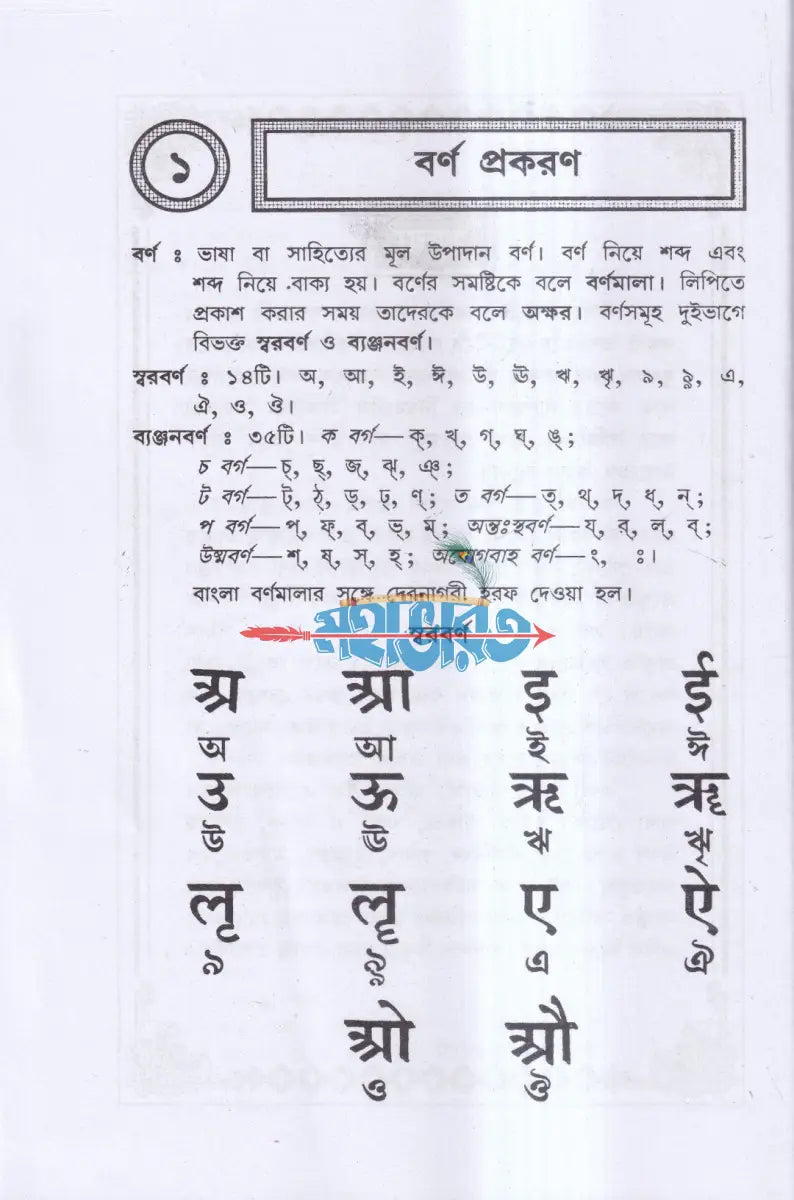 ১
বর্ণ প্রকরণ
বর্ণ ঃ ভাষা বা সাহিত্যের মূল উপাদান বর্ণ। বর্ণ নিয়ে শব্দ এবং
শব্দ নিয়ে বাক্য হয়। বর্ণের সমষ্টিকে বলে বর্ণমালা। লিপিতে
প্রকাশ করার সময় তাদেরকে বলে অক্ষর। বর্ণসমূহ দুইভাগে
বিভক্ত স্বরবর্ণ ও ব্যঞ্জনবর্ণ।
স্বরবর্ণ ঃ ১৪টি। অ, আ, ই, ঈ, উ, ঊ, ঋ, ৠ, ঌ, ৡ, এ,
ঐ, ও, ঔ।
ব্যঞ্জনবর্ণ ঃ ৩৫টি। ক বর্গ—ক্, খ্, গ্, ঘ্, ঙ্;
চ বর্গ—চ্, ছ্, জ্, ঝ্, ঞ্;
ট বর্গ—ট্, ঠ্, ড্, ঢ্, ণ্; ত বর্গ—ত্, থ্, দ্, ধ্, ন্;
প বর্গ—প্, ফ্, ব্, ভ্, ম্; অন্তঃস্থবর্ণ—য্, র্, ল্, ব্;
উষ্মবর্ণ—শ্, ষ্, স্, হ্; অযোগবাহ বর্ণ—ং, ঃ।
বাংলা বর্ণমালার সঙ্গে দেবনাগরী হরফ দেওয়া হল।
মহাভারত
স্বরবর্ণ
अ आ इ ई
অ আ ই ঈ
उ ऊ ऋ ॠ
উ ঊ ঋ ৠ
ऌ ॡ ए ऐ
ঌ ৡ এ ঐ
ओ औ
ও ঔ